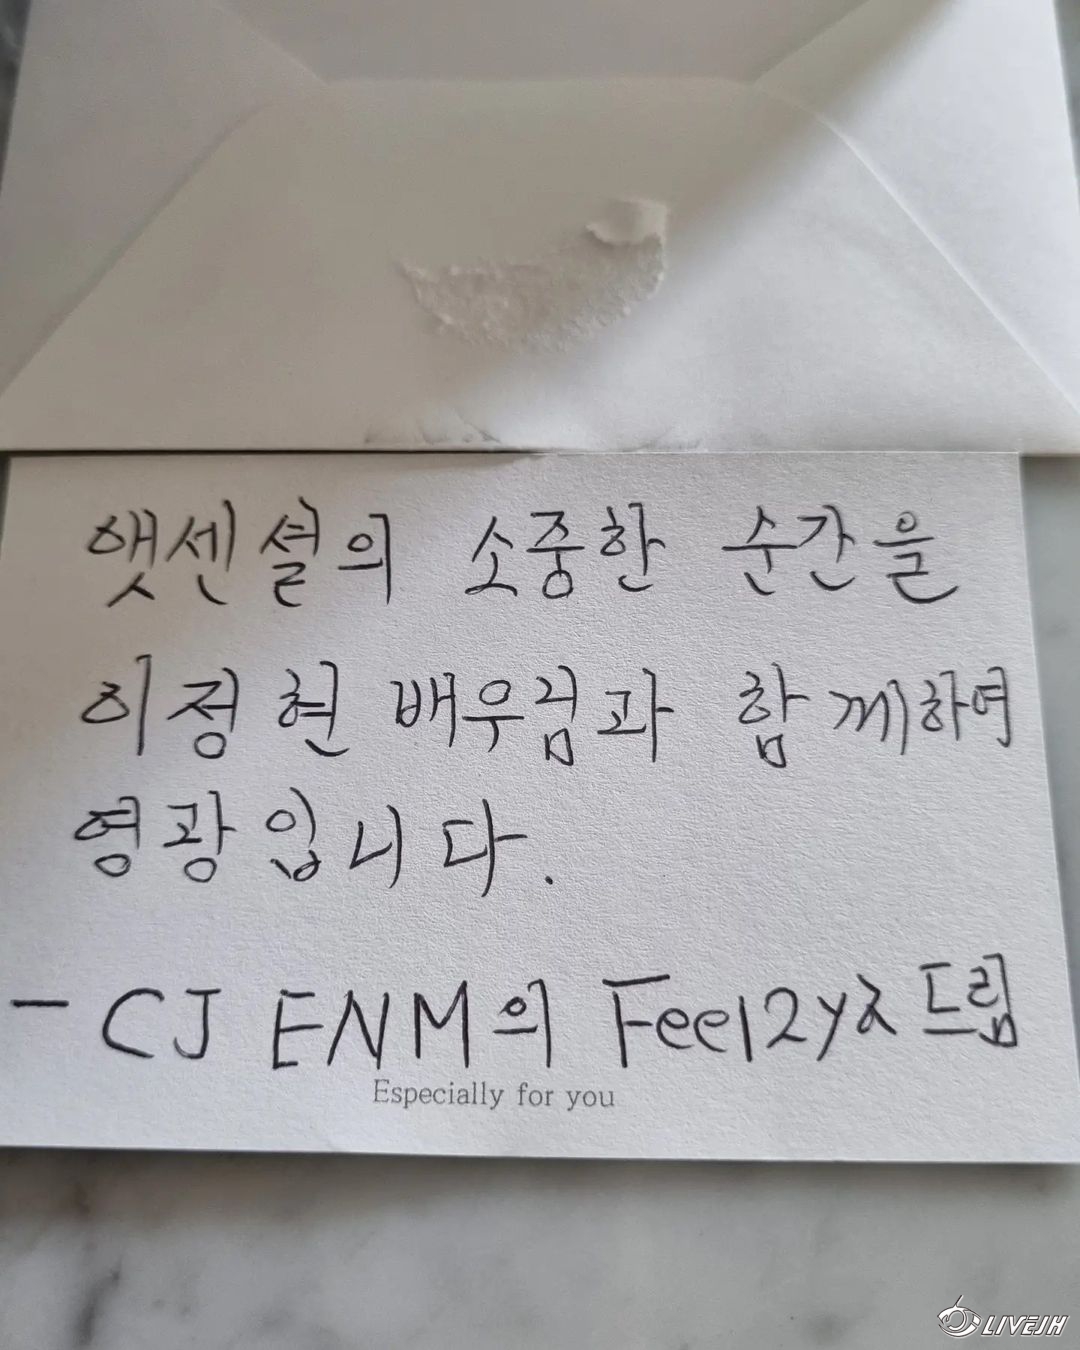 앳센셜의 소중한 순간을
이정현 배우님과 함께하여
영광입니다.
- CJ ENM의 드림
Especially for you
LIVEJH